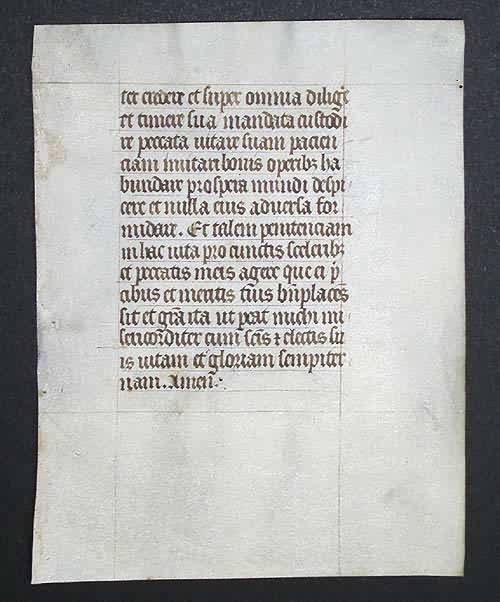 ter credere et super omnia diligē
et timere sua mandata custodi
re peccata vitare suam pacien
ciam imitari bonis operibꝫ ha
bundare prospera mundi despi
cere et nulla eius adversa for
midare. Et talem penitenciam
in hac vita pro cunctis sceleribꝫ
et peccatis meis agere que ei p̄
cibus et meritis tuis bn̄placēs
sit et grā ita ut peat michi mi
sericorditer cum scīs ⁊ electis su
is vitam et gloriam sempiter
nam. Amen.